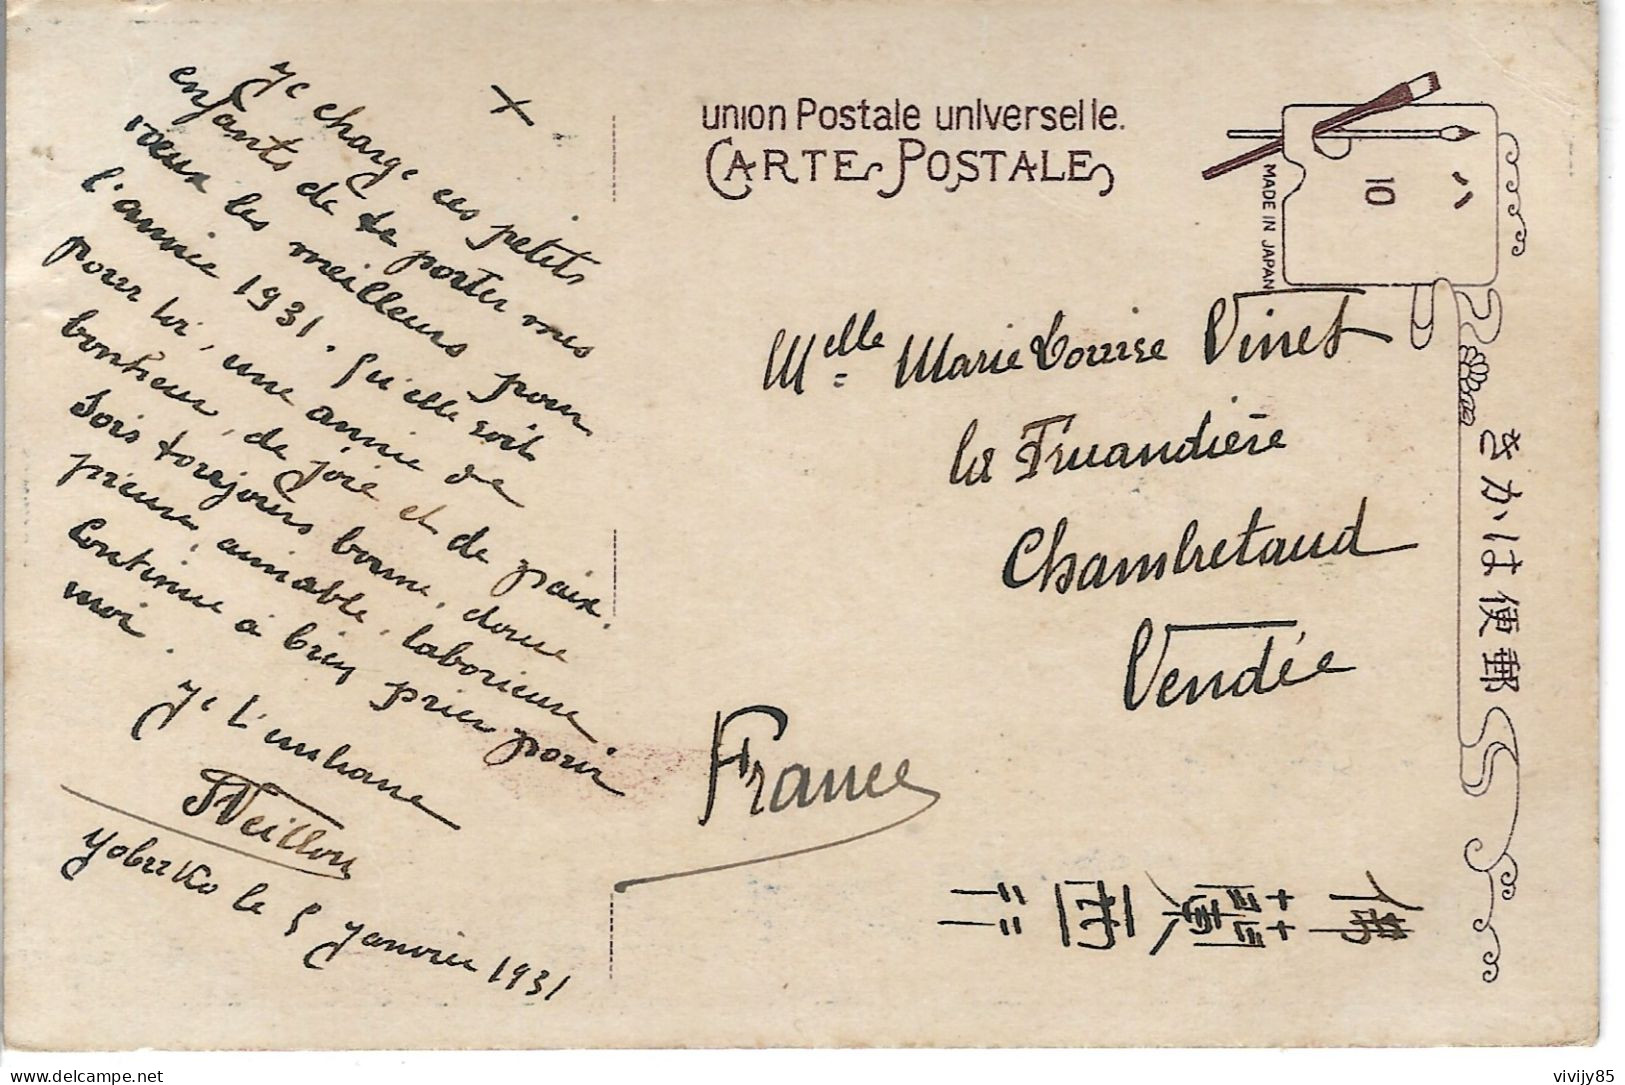 +
Je charge ces petits
enfants de te porter mes
vœux les meilleurs pour
l'année 1931. Qu'elle soit
pour toi, une année de
bonheur, de joie et de paix.
Sois toujours bonne, douce
pieuse, aimable, laborieuse
Continue à bien prier pour
moi.
Je t'embrasse
Yobuko le 5 Janvier 1931
union Postale universelle.
CARTE POSTALE
MADE IN JAPAN
ハ
10
Melle Marie Louise Vinet
la Fruandière
Chambretaud
Vendée
France
きかは便郵
佛蘭西行
vivijy85